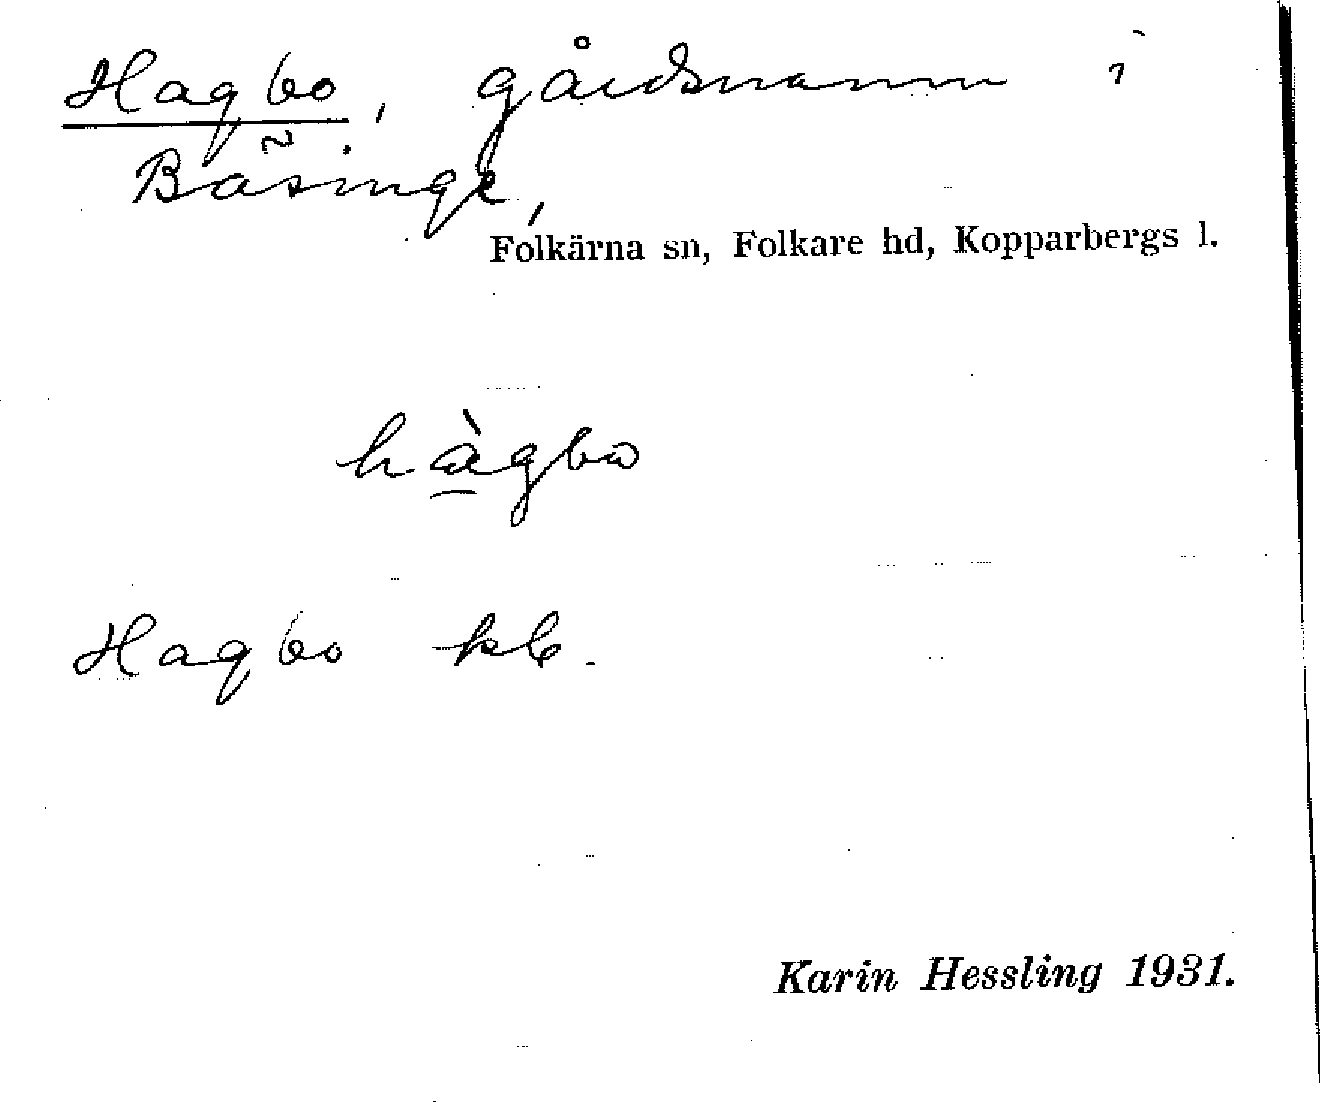 Hagbo, gårdsnamn i
Bäsinge,
Folkärna sn, Folkare hd, Kopparbergs l.
hàgbo
Hagbo
Karin Hessling 1931.